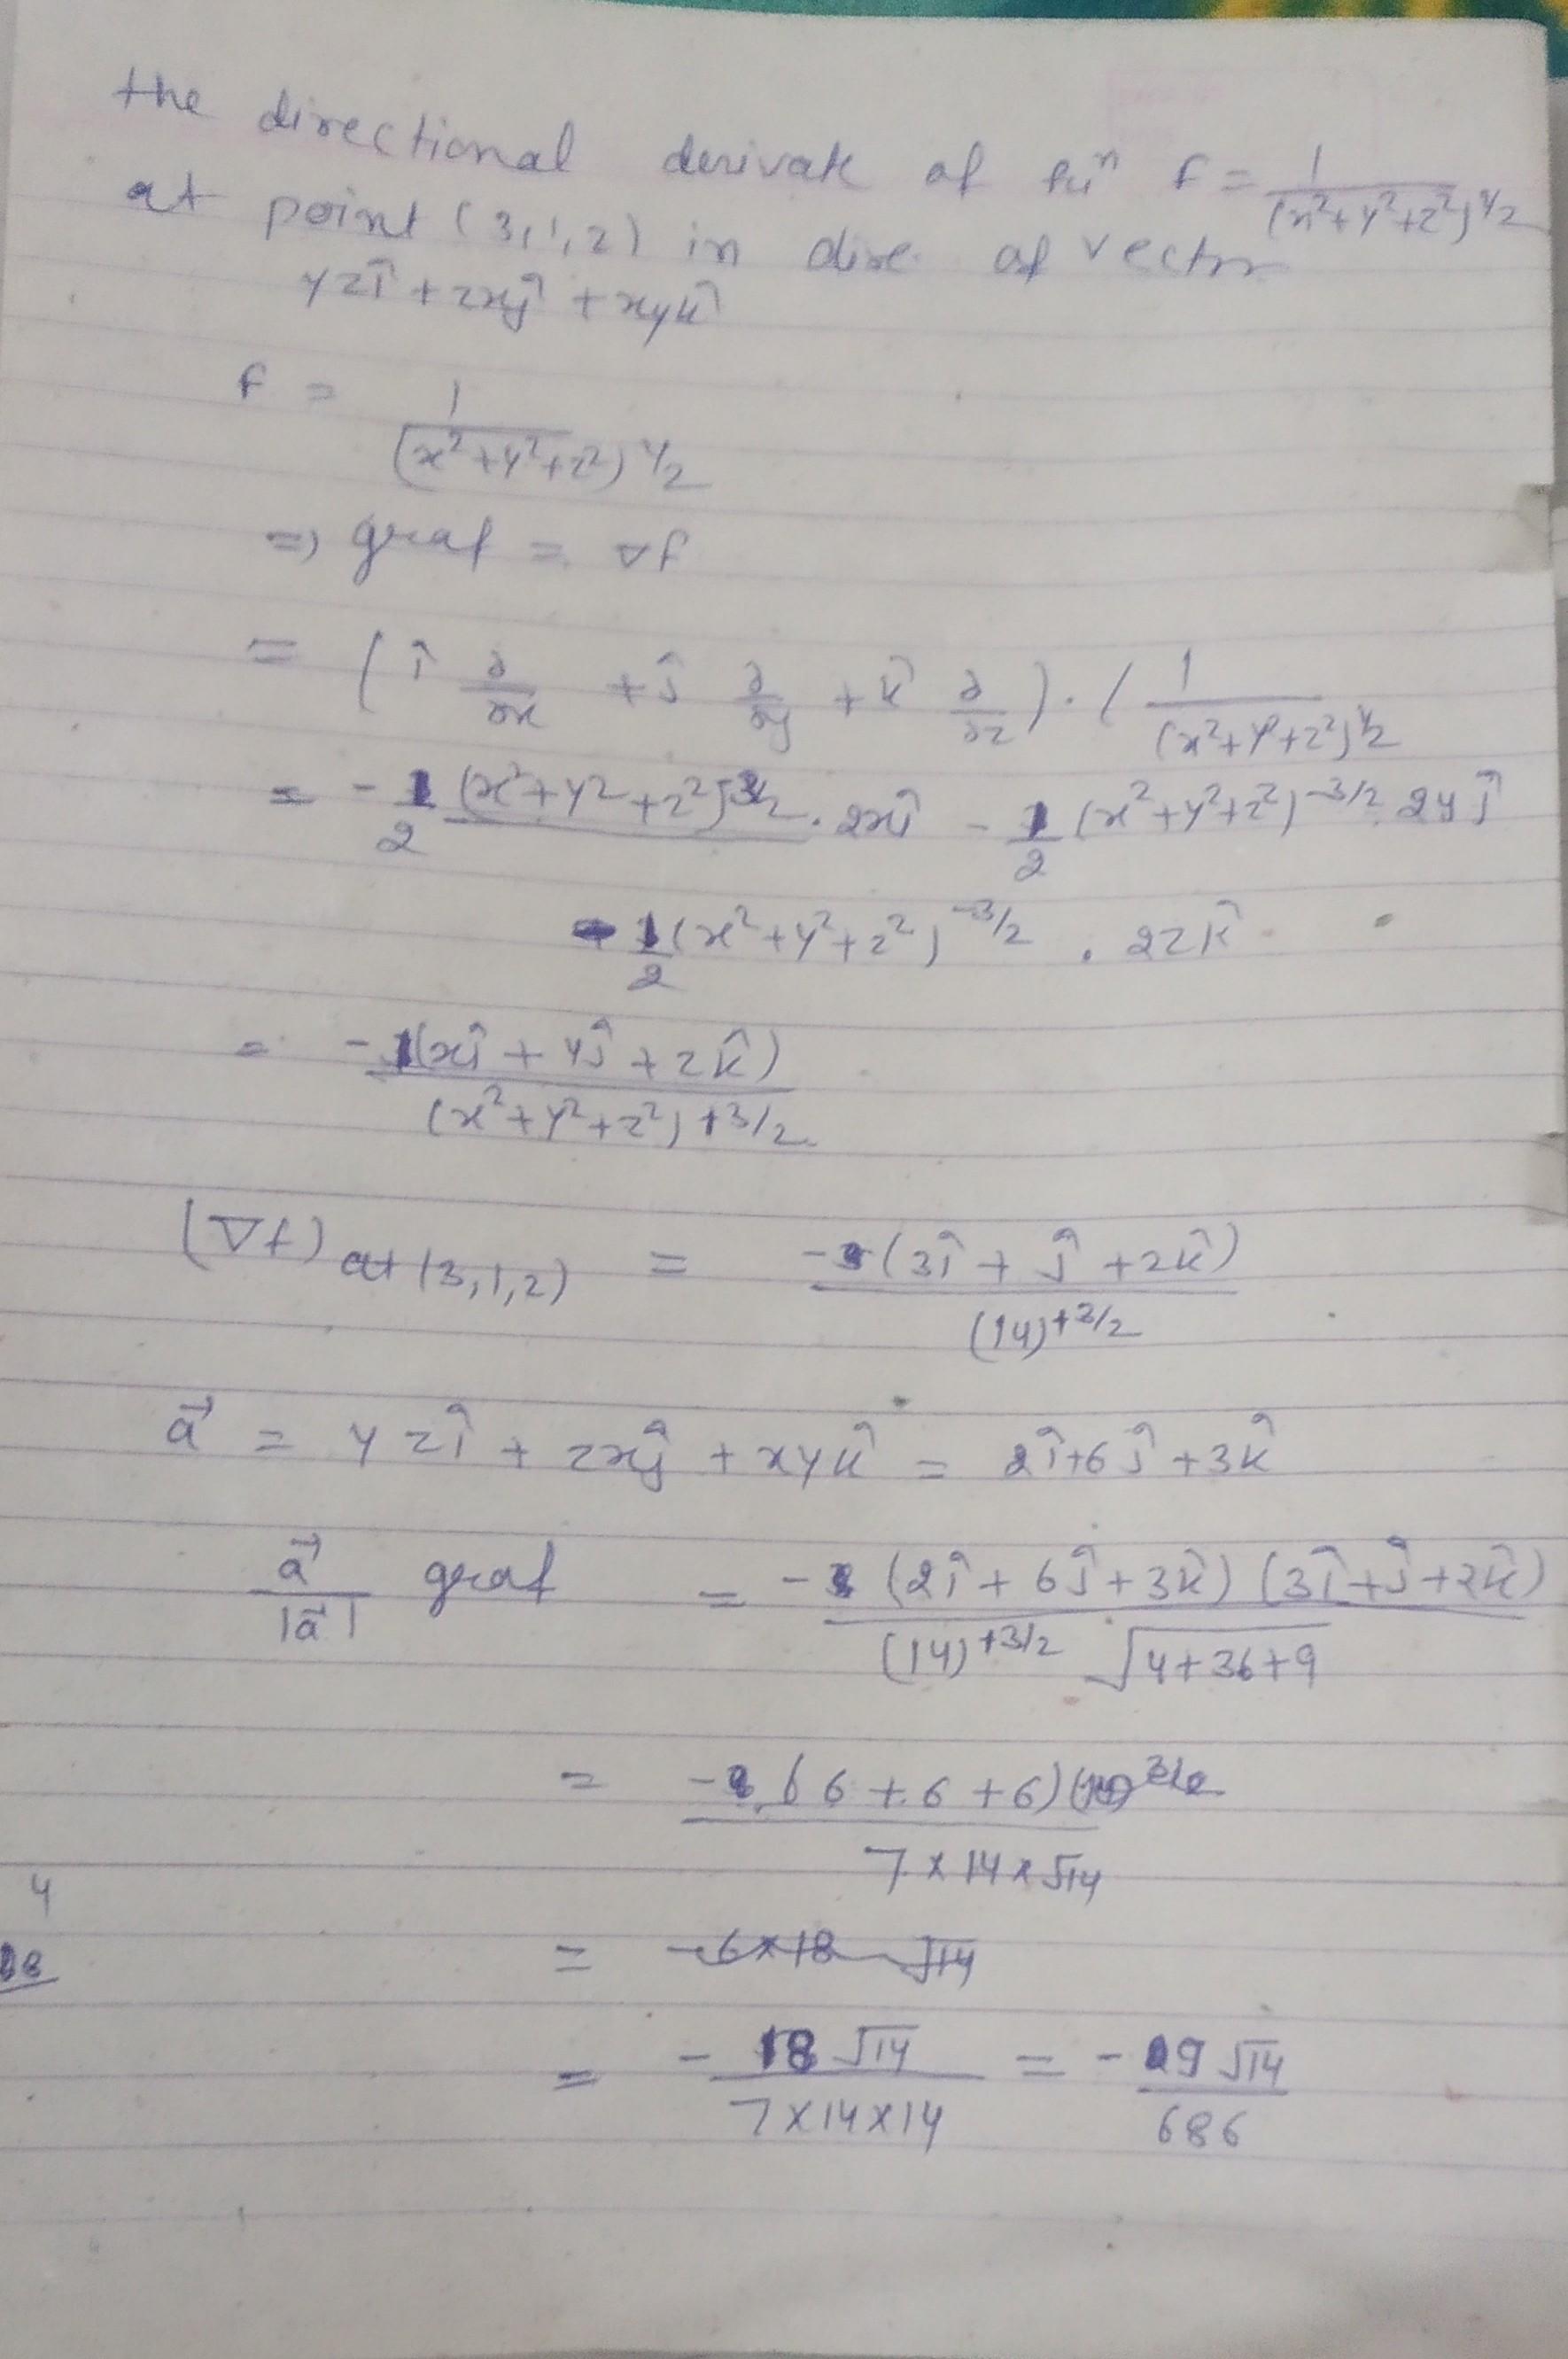 the directional derivate of fuⁿ f = 1/(x²+y²+z²)^1/2
at point (3,1,2) in dire. of vector
yzî + zxĵ + xyk̂
f = 1/(x²+y²+z²)^1/2
=> graf = ∇f
= (î ∂/∂x + ĵ ∂/∂y + k̂ ∂/∂z) . (1/(x²+y²+z²)^1/2
= -1/2 (x²+y²+z²)^-3/2 . 2xî - 1/2 (x²+y²+z²)^-3/2 . 2yĵ
- 1/2 (x²+y²+z²)^-3/2 . 2zk̂
= -1(xî + yĵ + zk̂)/(x²+y²+z²)^+3/2
(∇f) at (3,1,2) = -(3î + ĵ + 2k̂)/(14)^+3/2
a⃗ = yzî + zxĵ + xyk̂ = 2î+6ĵ+3k̂
a⃗/|a⃗| graf = -(2î + 6ĵ + 3k̂) (3î+ĵ+2k̂)/(14)^+3/2 √4+36+9
= -(6 + 6 + 6)/7 x 14 x √14
4
18
= -6x18 √14
= - 18 √14/7 x 14 x 14 = - 9 √14/686